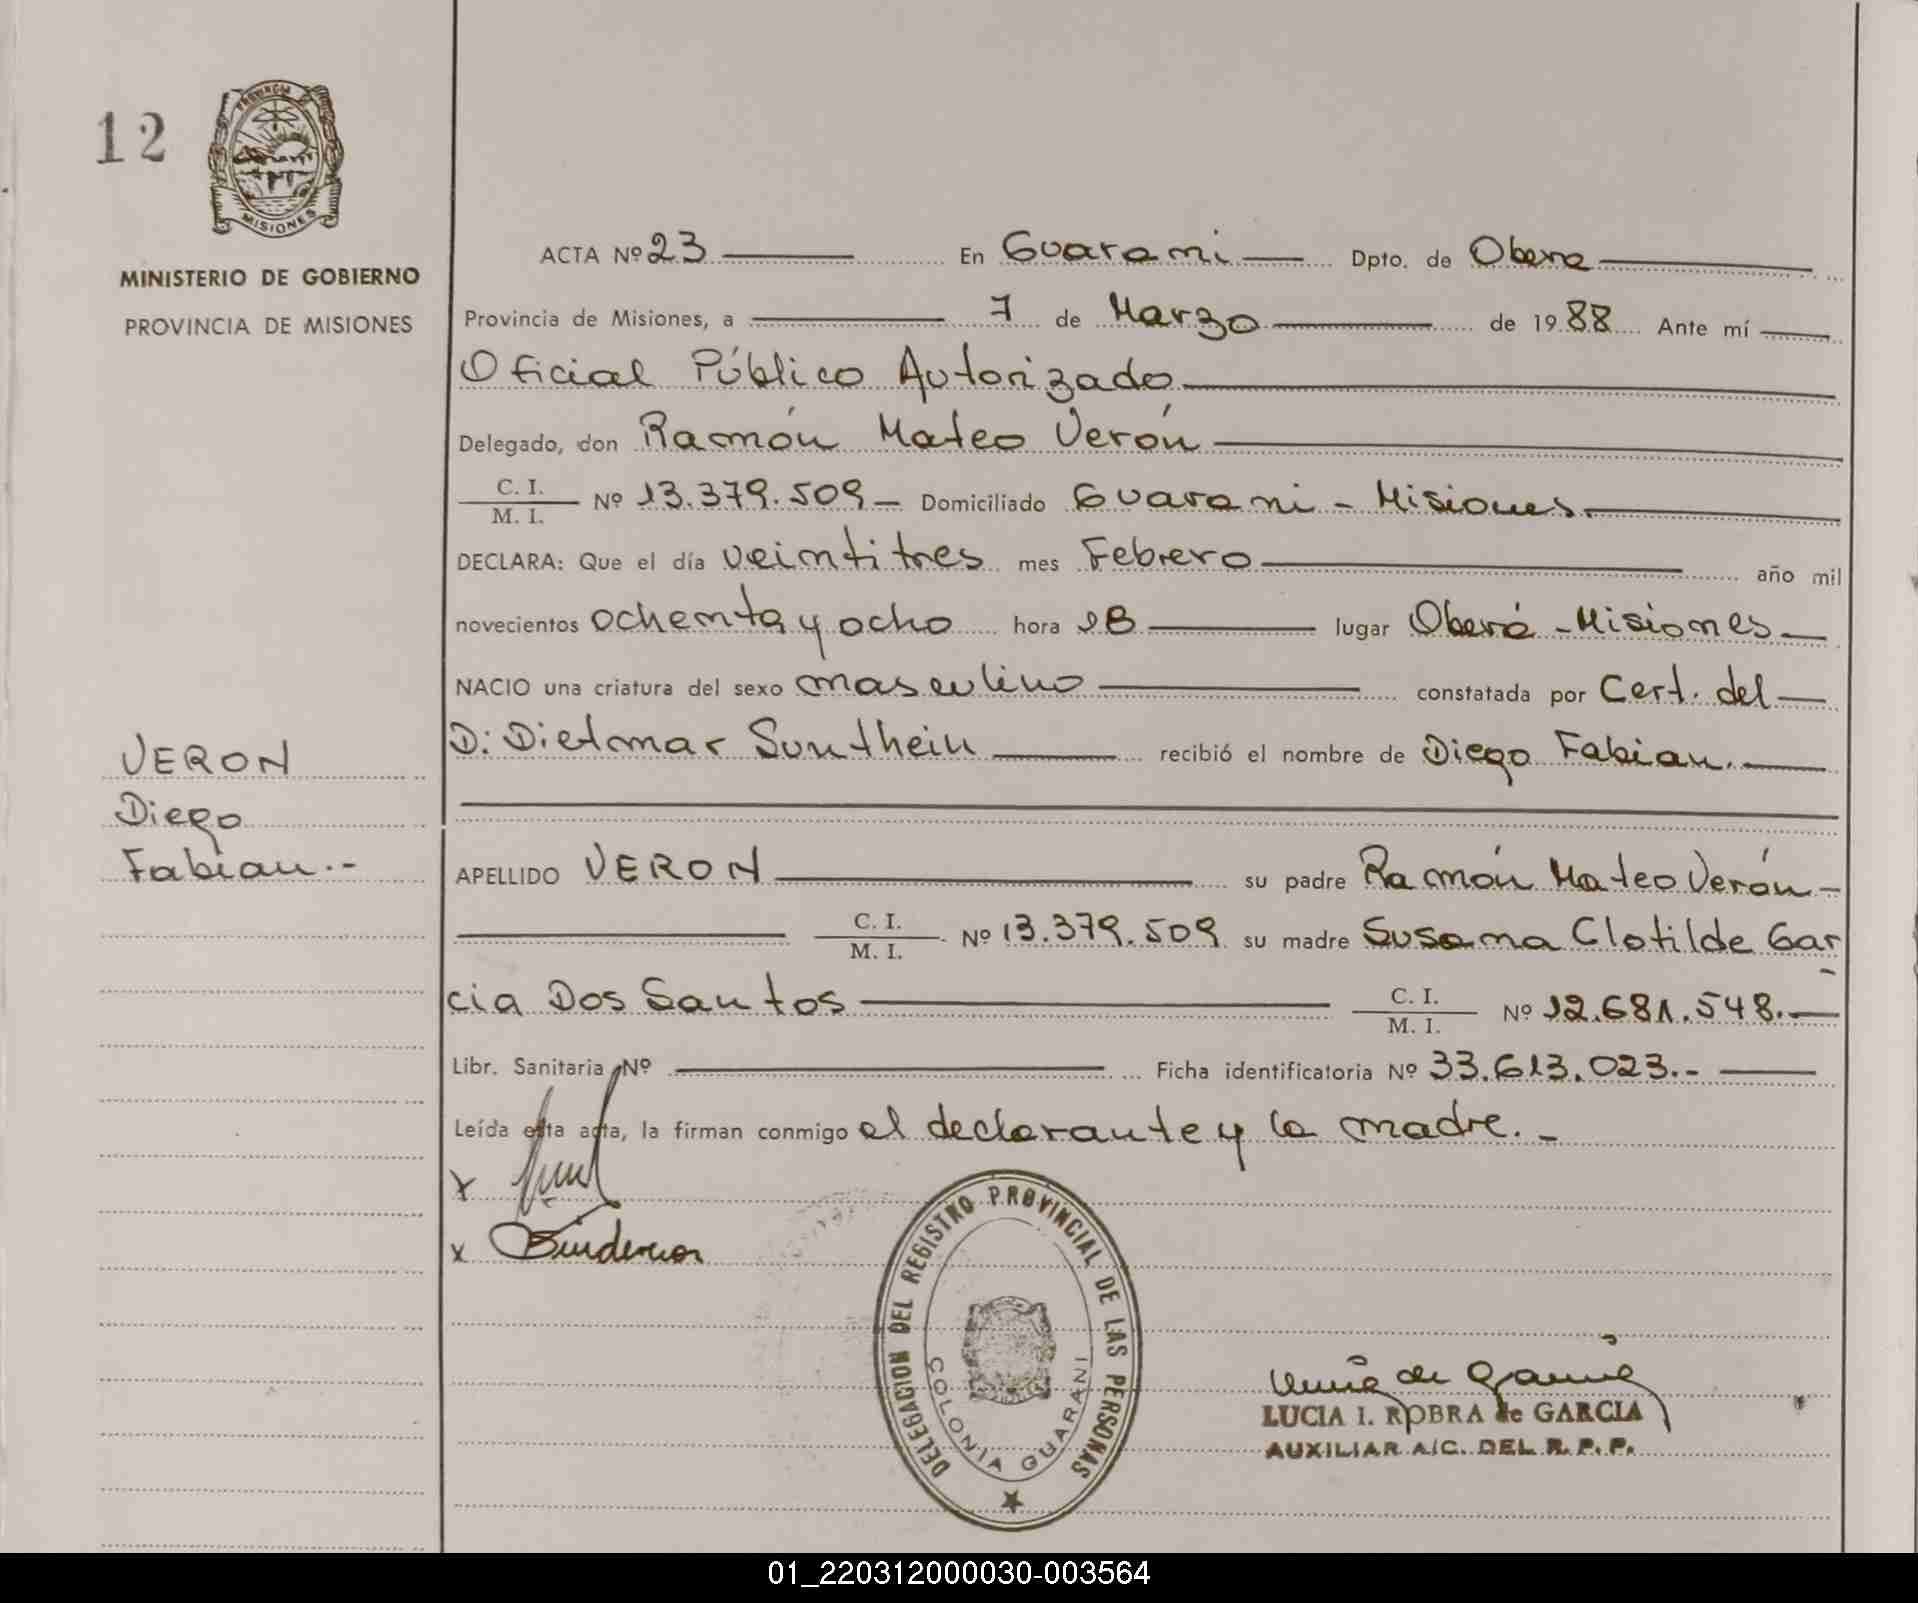 12
PROVINCIA
MISIONES
MINISTERIO DE GOBIERNO
PROVINCIA DE MISIONES
VERON
Diego
Fabian.-
ACTA Nº 23 En Guarani Dpto. de Obera
Provincia de Misiones, a 7 de Marzo de 1988 Ante mí
Oficial Público Autorizado
Delegado, don Ramón Mateo Verón
C. I.
M. I. Nº 13.379.509 - Domiciliado Guarani - Misiones.
DECLARA: Que el día veintitres mes Febrero año mil
novecientos ochenta y ocho hora 18 lugar Oberá - Misiones
NACIO una criatura del sexo masculino constatada por Cert. del
D: Dietmar Sunthein recibió el nombre de Diego Fabian.
APELLIDO VERON su padre Ramón Mateo Verón -
C. I.
M. I. Nº 13.379.509 su madre Susana Clotilde Gar
cia Dos Santos C. I.
M. I. Nº 12.681.548.
Libr. Sanitaria Nº Ficha identificatoria Nº 33.613.023.-
Leída esta acta, la firman conmigo el declarante y la madre. -
x
x
DELEGACION DEL REGISTRO PROVINCIAL DE LAS PERSONAS
COLONIA GUARANI
LUCIA I. ROBRA de GARCIA
AUXILIAR A/C. DEL R. P. P.
01_220312000030-003564